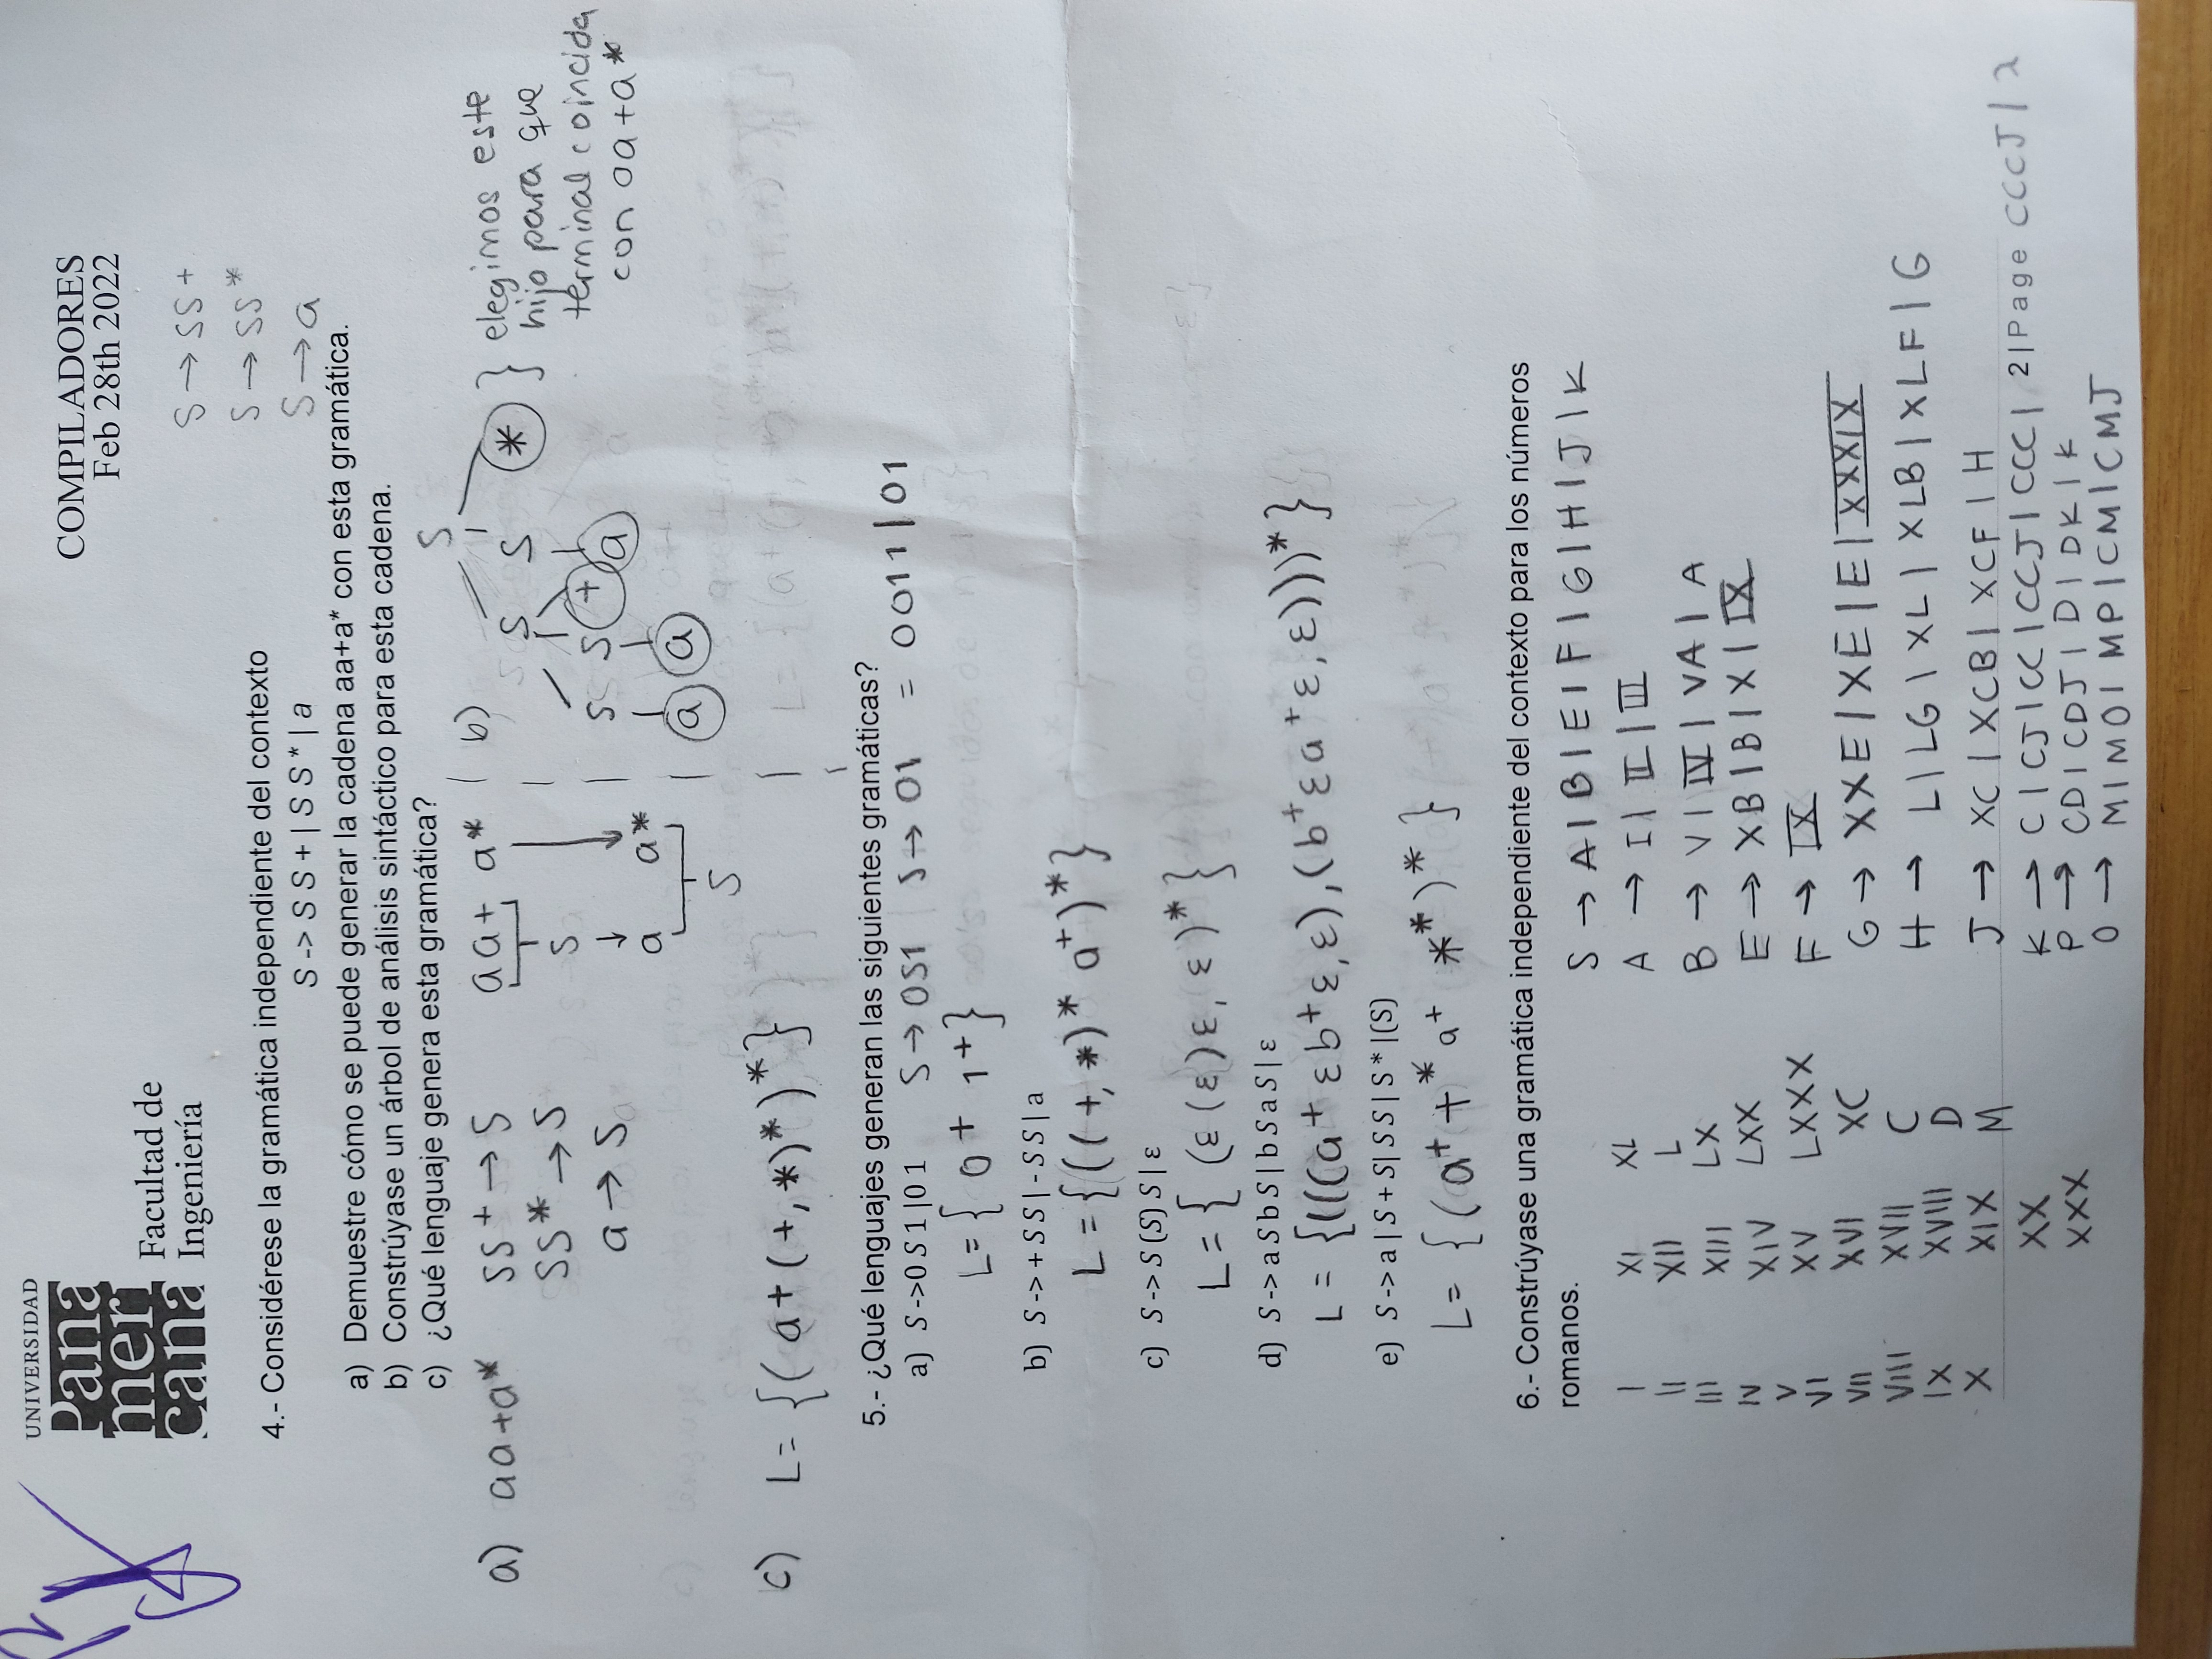 UNIVERSIDAD
Pana
meri
cana
Facultad de
Ingeniería
COMPILADORES
Feb 28th 2022
S → SS +
S → SS *
S → a
4.- Considérese la gramática independiente del contexto
S -> S S + | S S * | a
a) Demuestre cómo se puede generar la cadena aa+a* con esta gramática.
b) Constrúyase un árbol de análisis sintáctico para esta cadena.
c) ¿Qué lenguaje genera esta gramática?
a) aa+a*
SS + → S
SS * → S
a → S
aa+ a*
S
↓
a a*
S
b)
S
S S *
S S + a
a a
} elegimos este
hijo para que
terminal coincida
con aa+a*
c) L= {( a+(+,*)*)*}
5.- ¿Qué lenguajes generan las siguientes gramáticas?
a) S ->0 S 1 |0 1 S → 0S1 S → 01 = 0011 | 01
L= { 0⁺ 1⁺}
b) S -> + S S | - S S | a
L = {((+, *)* a⁺)*}
c) S -> S (S) S | ε
L = { (ε(ε)ε, ε)* }
d) S -> a S b S | b S a S | ε
L = {(((a⁺ εb⁺ε,ε),(b⁺εa⁺ε,ε)))*}
e) S -> a | S + S| S S | S * |(S)
L= {(a⁺ +* a⁺ **)* }
6.- Constrúyase una gramática independiente del contexto para los números
romanos.
S → A | B | E | F | G | H | J | K
I XI XL A → I | II | III
II XII L
III XIII LX B → V | IV | VA | A
IV XIV LXX E → XB | B | X | IX
V XV LXXX F → IX
VI XVI XC G → XXE | XE | E | XXXIX
VII XVII C H → L | LG | XL | XLB | XLF | G
VIII XVIII D
IX XIX M J → XC | XCB | XCF | H
X XX K → C | CJ | CC | CCJ | CCC | CCCJ | λ
2 | Page
XXX P → CD | CDJ | D | DK | K
O → M | MO | MP | CM | CMJ